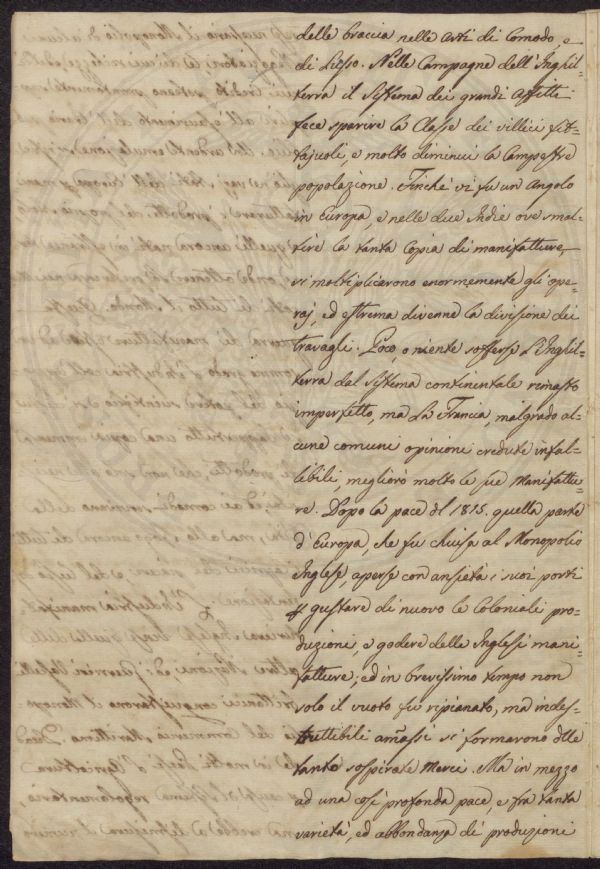 delle braccia nelle arti di Comodo, e
di Lusso. Nelle Campagne dell'Inghil=
terra il Sistema dei grandi Affitti
fece sparire la Classe dei villici fit=
tajuoli, e molto diminuì la Campestre
popolazione. Finchè vi fu un Angolo
in Europa, e nelle due Indie ove smal=
tire la tanta Copia di manifatture,
si moltiplicarono enormemente gli ope=
raj, ed estrema divenne la divisione dei
travagli. Poco, o niente sofferse l'Inghil=
terra dal Sistema continentale rimasto
imperfetto, ma la Francia, malgrado al=
cune comuni opinioni credute infal=
libili, migliorò molto le sue Manifattu=
re. Dopo la pace del 1815. quella parte
d'Europa, che fu chiusa al Monopolio
Inglese, aperse con ansietà i suoi porti
p gustare di nuovo le Coloniali pro=
duzioni, e godere delle Inglesi mani=
fatture; ed in brevissimo tempo non
solo il vuoto fu ripianato, ma indes=
truttibili amassi si formarono delle
tanto sospirate Merci. Ma in mezzo
ad una così profonda pace, e fra tanta
varietà, ed abbondanza di produzioni